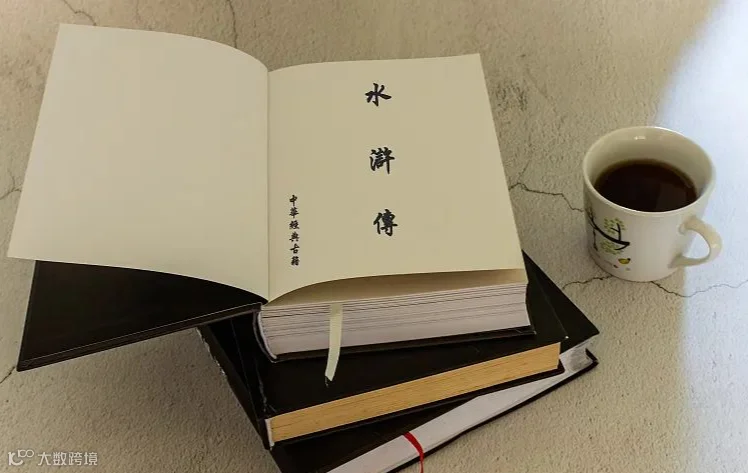 水滸傳
中華經典古籍
大数跨境